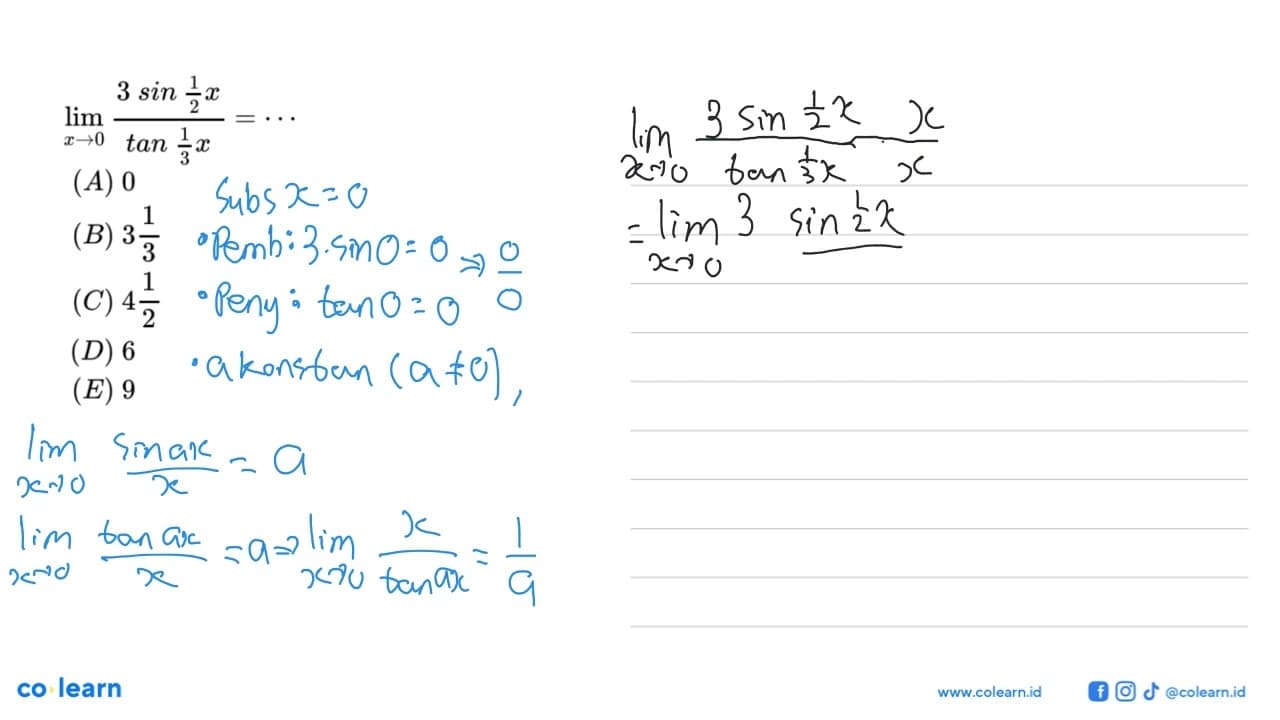 lim x→0 3 sin 1/2 x / tan 1/3 x = ...
(A) 0
(B) 3 1/3
(C) 4 1/2
(D) 6
(E) 9
Subs x = 0
• Pemb: 3. sin 0 = 0 ⇒ 0/0
• Peny: tan 0 = 0
• a konstan (a ≠ 0),
lim x→0 sin ax / x = a
lim x→0 tan ax / x = a ⇒ lim x→0 x / tan ax = 1/a
lim x→0 3 sin 1/2 x / tan 1/3 x · x / x
= lim x→0 3 sin 1/2 x
co learn
www.colearn.id
@colearn.id